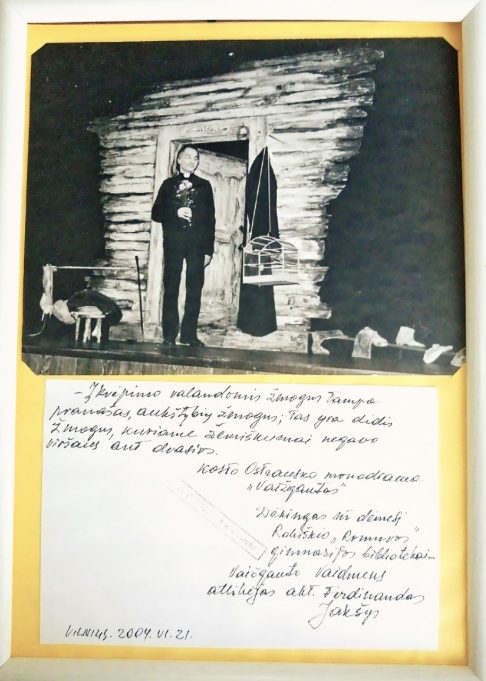 – Įkvėpimo valandomis žmogus tampa
pranašas, aukštybių žmogus; tas yra didis
žmogus, kuriame žemiškumai negavo
viršaus ant dvasios.
Kosto Ostrausko monodrama
„Vaižgantas“
Dėkingas už dėmesį
Rokiškio „Romuvos“
gimnazijos bibliotekai –
Vaižganto vaidmens
atlikėjas akt. Ferdinandas
Jakšys
VILNIUS. 2004. VI. 21.